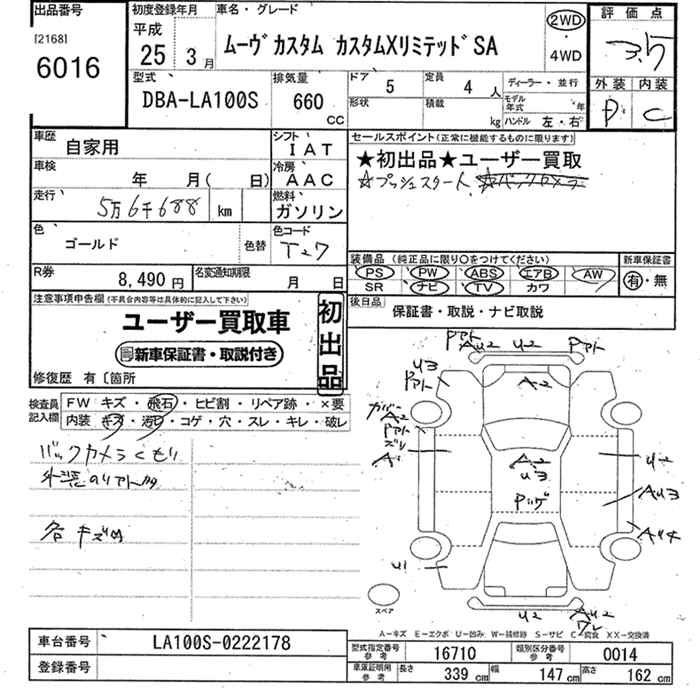 出品番号
[2168]
6016
初度登録年月
平成
25年 3月
車名・グレード
ムーヴカスタム カスタムXリミテッドSA
2WD
・
4WD
評価点
3.5
外装 内装
D C
型式
DBA-LA100S
排気量
660 CC
ドア 5
定員 4 人
形状
積載 kg
ディーラー・並行
モデル年式 年
ハンドル 左・右
車歴 自家用
シフト IAT
車検 年 月( 日)
冷房 AAC
走行 5万6千688 km
燃料 ガソリン
色 ゴールド
色替
色コード T27
R券 8,490円
名変通知期限 月 日
セールスポイント(正常に機能するものに限ります)
★初出品★ユーザー買取
☆プッシュスタート ☆バックカメラ
装備品(純正品に限り○をつけてください)
PS PW ABS エアB AW
SR ナビ TV カワ
新車保証書
有・無
後日品 保証書・取説・ナビ取説
注意事項申告欄(不具合内容等は具体的に記入して下さい)
ユーザー買取車
新車保証書・取説付き
初出品
修復歴 有〔箇所
検査員記入欄
FW キズ・飛石・ヒビ割・リペア跡・×要
内装 キズ・汚れ・コゲ・穴・スレ・キレ・破レ
バックカメラくもり
各キズ凹
アト A2 U2 アト
U3
アト
A2
カバー
A2
アト
ズレ
A1
A2
U3
U2
AU3
AU4
U1
U2
AU2
ワレ
スペア
A-キズ E-エクボ U-凹み W-補修跡 S-サビ C-腐食 XX-交換済
車台番号 LA100S-0222178
登録番号
型式指定番号 参考 16710
類別区分番号 参考 0014
車庫証明用 参考 長さ 339 cm 幅 147 cm 高さ 162 cm